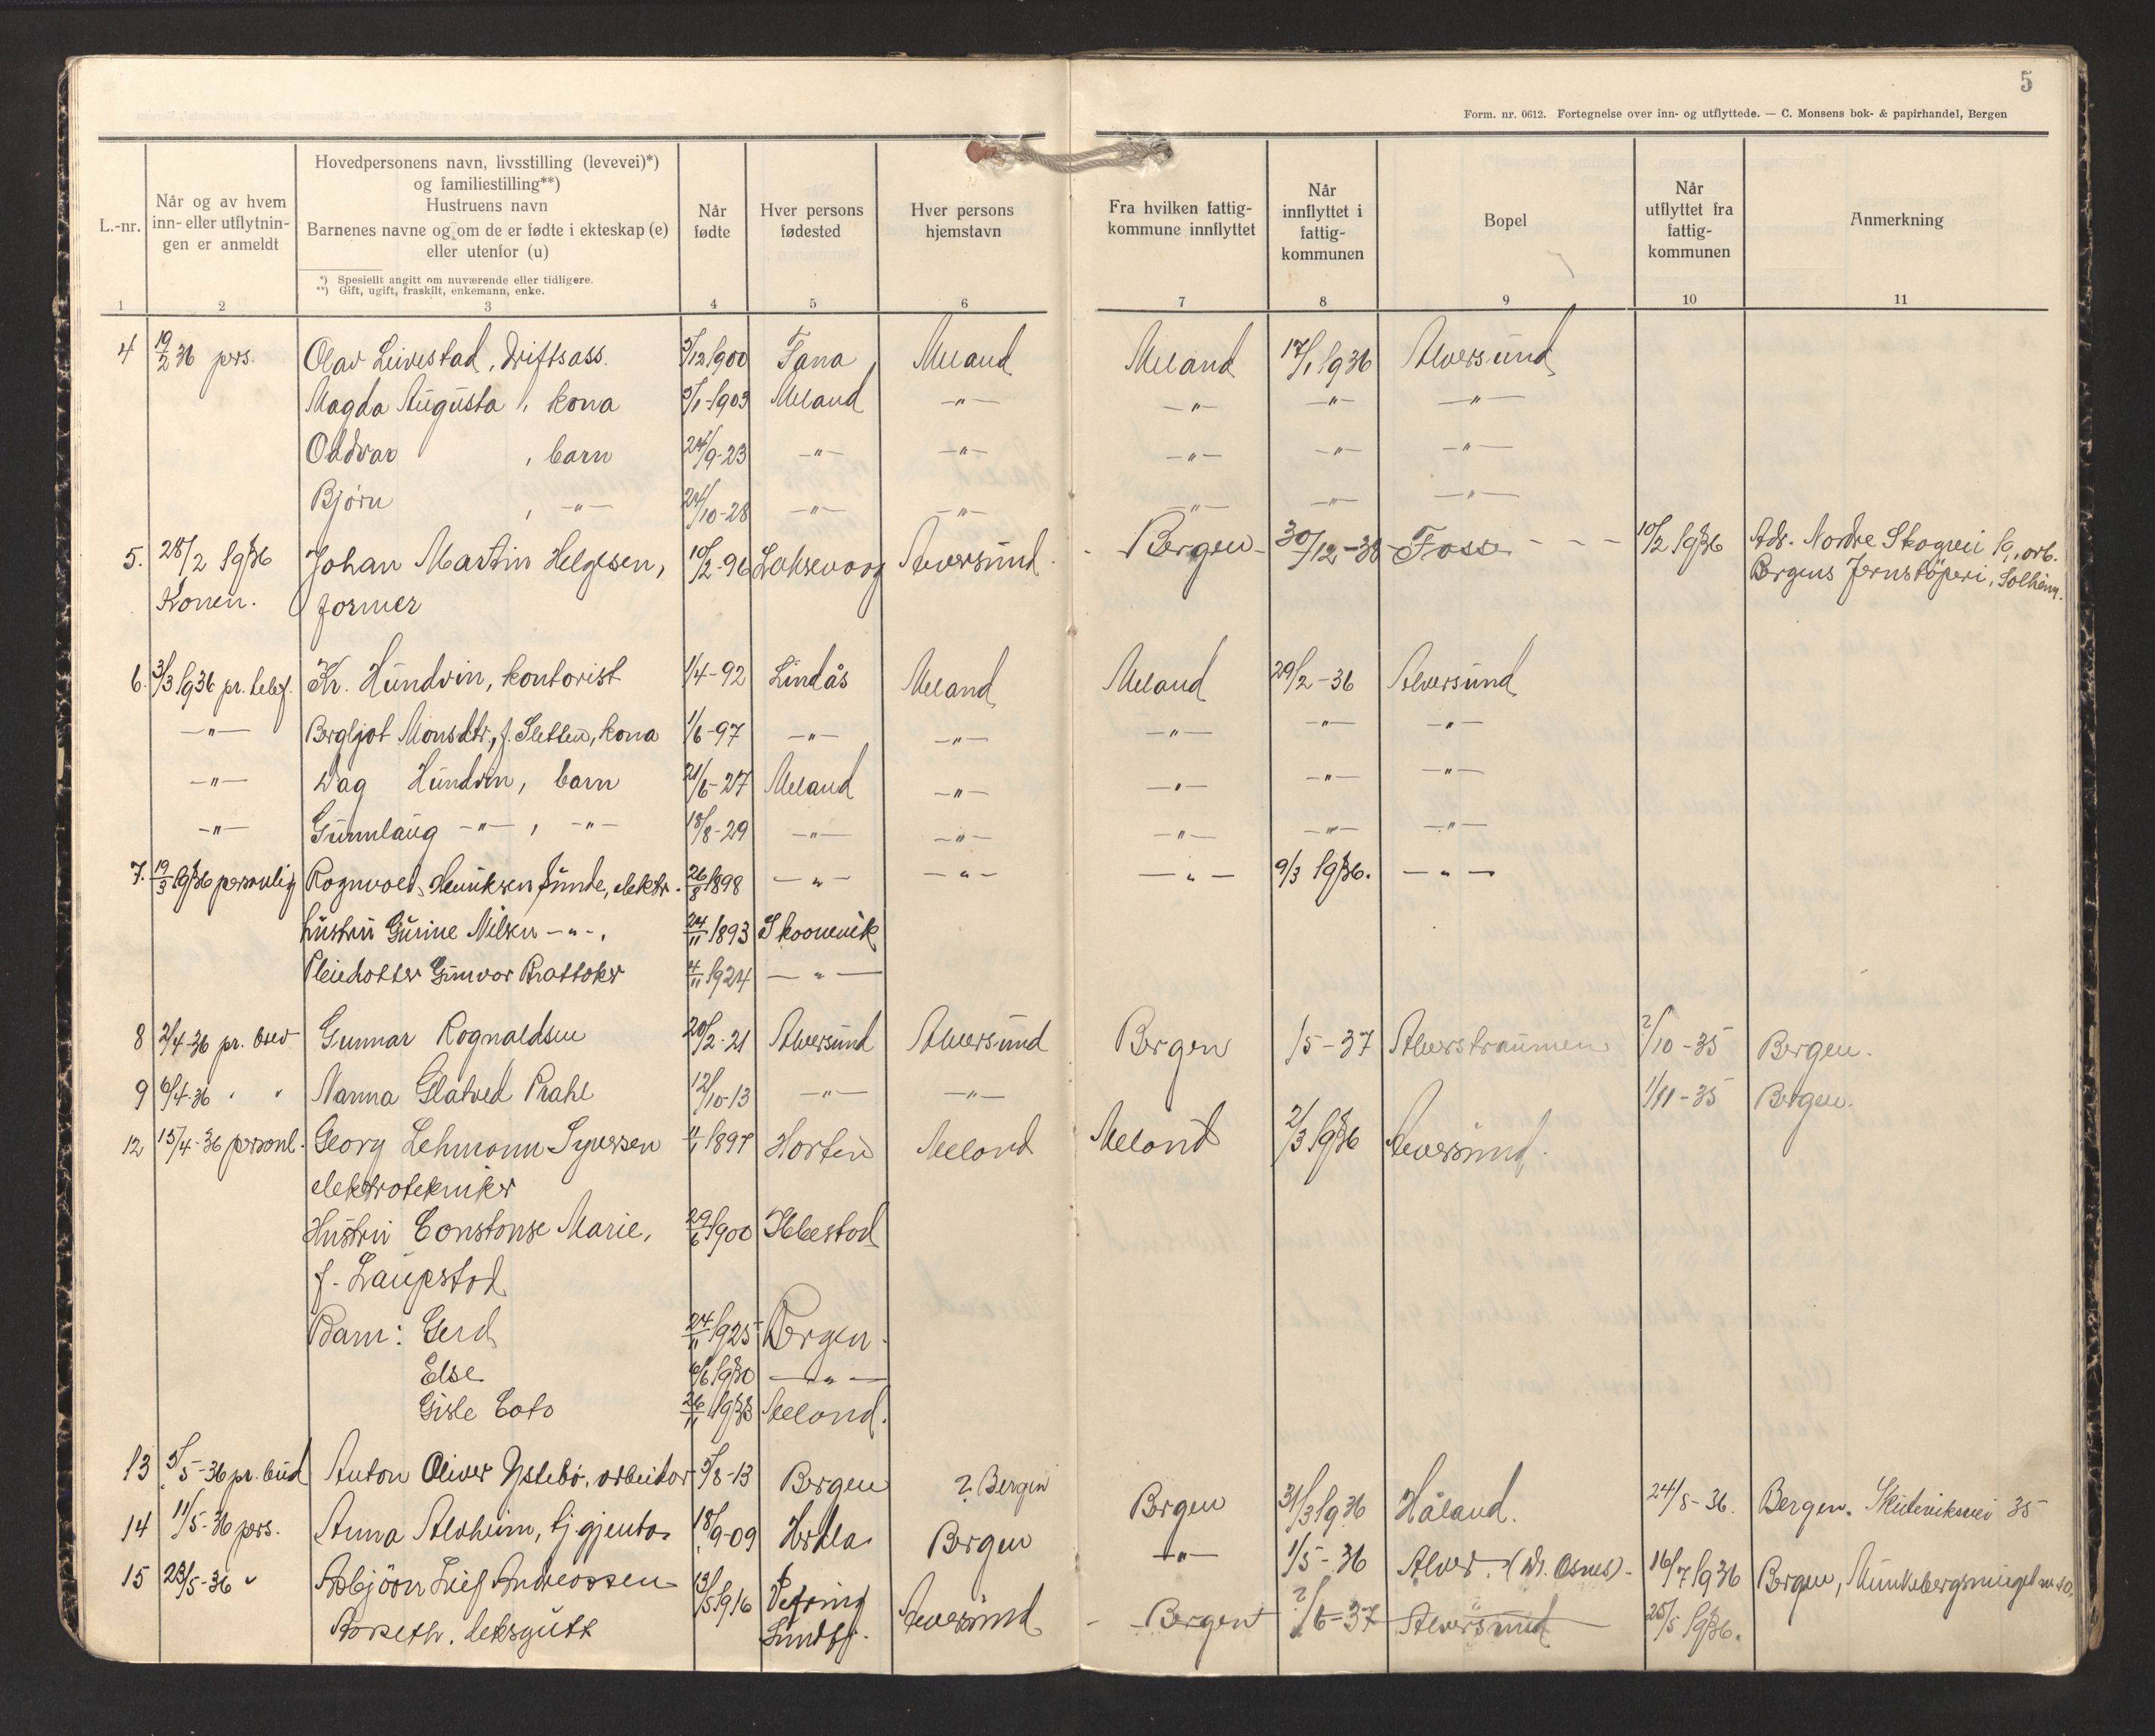 5
Form. nr. 0612. Fortegnelse over inn- og utflyttede. — C. Monsens bok- & papirhandel, Bergen
L.-nr.
Når og av hvem
inn- eller utflytnin-
gen er anmeldt
Hovedpersonens navn, livsstilling (levevei)*)
og familiestilling**)
Hustruens navn
Barnenes navne og om de er fødte i ekteskap (e)
eller utenfor (u)
*) Spesiellt angitt om nuværende eller tidligere.
**) Gift, ugift, fraskilt, enkemann, enke.
Når
fødte
Hver persons
fødested
Hver persons
hjemstavn
Fra hvilken fattig-
kommune innflyttet
Når
innflyttet i
fattig-
kommunen
Bopel
Når
utflyttet fra
fattig-
kommunen
Anmerkning
1 2 3 4 5 6 7 8 9 10 11
4 19/2 36 pers. Olav Leirestad, driftsass. 5/12 1900 Fana Meland Meland 17/1 1936 Alversund
Magda Augusta, kona 3/1-1903 Meland —"— —"— —"— —"—
Oddvar, barn 24/9-23 —"— —"— —"— —"— —"—
Bjørn, —"— 24/10-28 —"— —"— —"— —"— —"—
5. 28/2 1936 Johan Martin Helgesen, 10/2-96 Laksevaag Alversund - Bergen - 30/12-38 - Fosse - - - 10/2 1936 Adr. Nordre Skogvei arb.
Konen. former Bergens Jernstöperi, Solheim.
6. 3/3 1936 pr. telef. Kr. Hundvin, kontorist 1/4-92 Lindås Meland Meland 29/2-36 Alversund
—"— Bergljot Monsdtr, f. Sletten, kona 1/6-97 —"— —"— —"— —"— —"—
—"— Dag Hundvin, barn 21/6-27 Meland —"— —"— —"— —"—
—"— Gunnlaug —"—, —"— 18/8-29 —"— —"— —"— —"— —"—
7. 19/3 1936 personlig Rognvald Henriksen Sunde, elektr. 26/8 1898 —"— —"— —"— 9/3 1936. —"—
hustru Gurine Nilsen —"—, 24/11 1893 Skoonevik
Pleiedotter Gunvor Brattaker 4/11 1924 —"—
8 2/4-36 pr. brev Gunnar Rognaldsen 20/2-21 Alversund Alversund Bergen /5-37 Alverstraumen ?/10-35 Bergen.
9 6/4-36 " " Nanna Glatved Prahl 12/10-13 —"— —"— 1/11-35 Bergen.
12 15/4-36 personl. Georg Lehmann Syversen 1897 Horten Meland Meland 2/3 1936 Alversund.
elektrotekniker
Hustru Constanse Marie, 29/6 1900 Ibbestad
f. Laupstad
Barn: Gerd 24/11 1925 Bergen.
Else 6/6 1930 —"—
Gisle Coto 26/11 1933 Meland.
13 5/5-36 pr. bud Anton Oliver Ystebö, arbeider 5/8-13 Bergen ? Bergen Bergen 31/3 1936 Håland. 24/8-36. Bergen. Skuteviksvei 35
14 11/5-36 pers. Anna Alvheim, tj.gjenta 18/9-09 Herdla Bergen —"— 1/5-36 Alver. (Dr. Osnes) - 16/7 1936 Bergen, Munkebergsmuget
15 23/5-36 " Asbjörn Leif Andreassen 13/5 1916 Vefring Alversund - Bergen ?/6-37 Alversund 25/5 1936.
Borseth. leksgutt Sundfj.